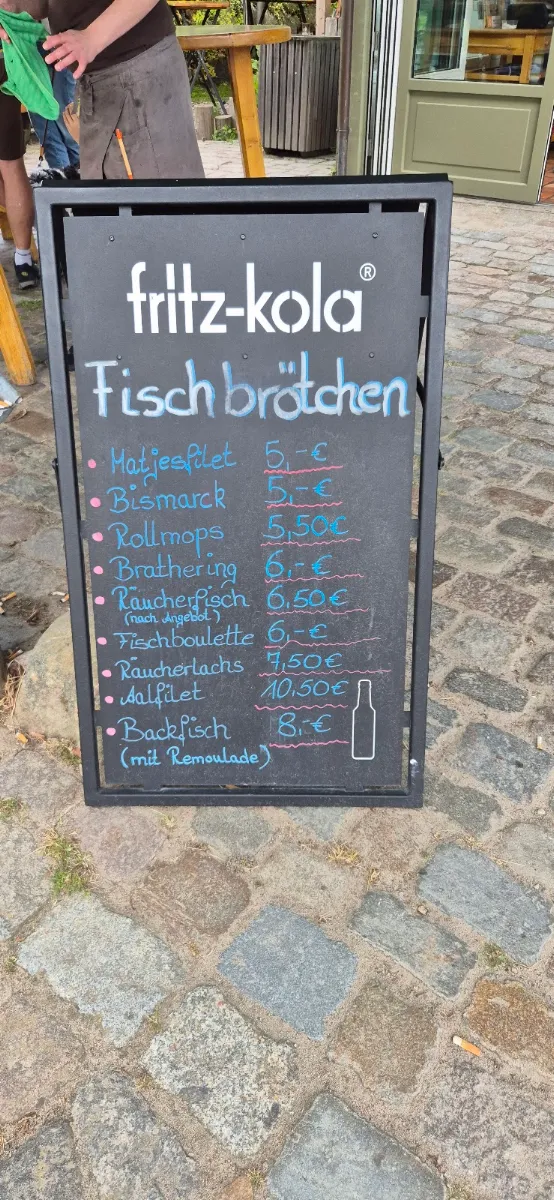 fritz-kola®
Fischbrötchen
• Matjesfilet 5,-€
• Bismarck 5,-€
• Rollmops 5,50€
• Brathering 6,-€
• Räucherfisch 6,50€
(nach Angebot)
• Fischboulette 6,-€
• Räucherlachs 7,50€
• Aalfilet 10,50€
• Backfisch 8,-€
(mit Remoulade)